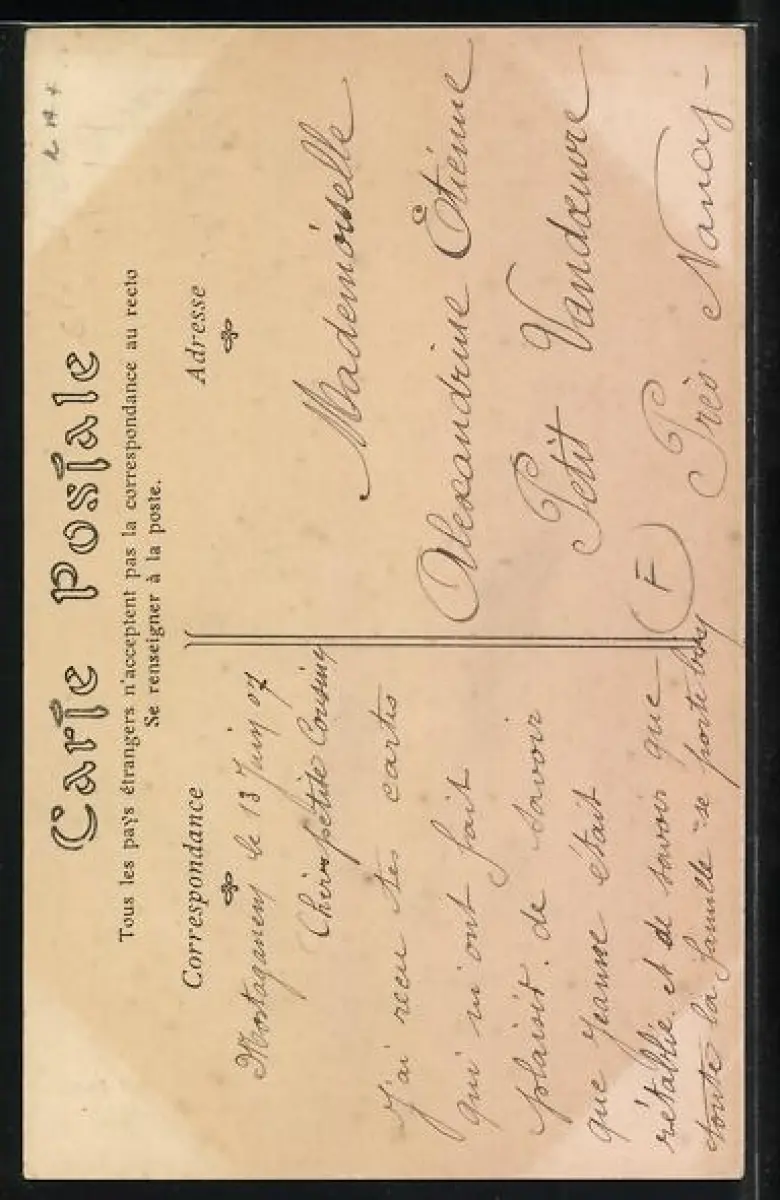 Carte Postale
Tous les pays étrangers n'acceptent pas la correspondance au recto
Se renseigner à la poste.
Correspondance
le 13 Juin 07
petite Cousine
J'ai recu tes cartes
qui m'ont fait
plaisir. de savoir
que Jeanne était
rétablie et de savoir que
toute la famille se porte bien
Adresse
Mademoiselle
Alexandrine Étienne
Petit Vandœuvre
(F) Près Nancy-